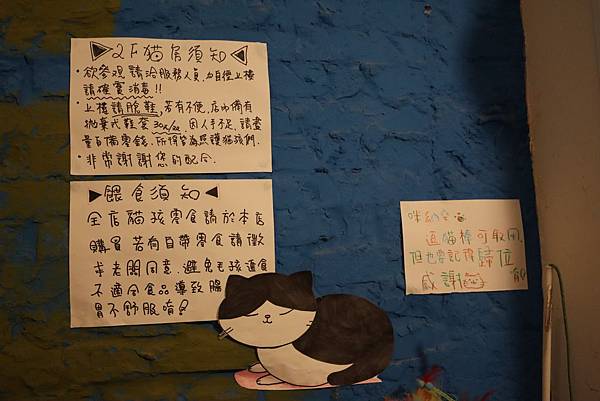 2F貓房須知
・欲參觀請洽服務人員,勿自行上樓
請確實消毒!!
・上樓請脫鞋,若有不便,店內備有
拋棄式鞋套30元/雙 因人手不足,請盡
量自備零錢.所得皆為照護貓孩們.
・非常謝謝您的配合.
餵食須知
全店貓孩零食請於本店
購買 若有自帶零食請徵
求老闆同意.避免毛孩適食
不適合食品導致腸
胃不舒服唷!
逗貓棒可取用,
但也要記得歸位
感謝